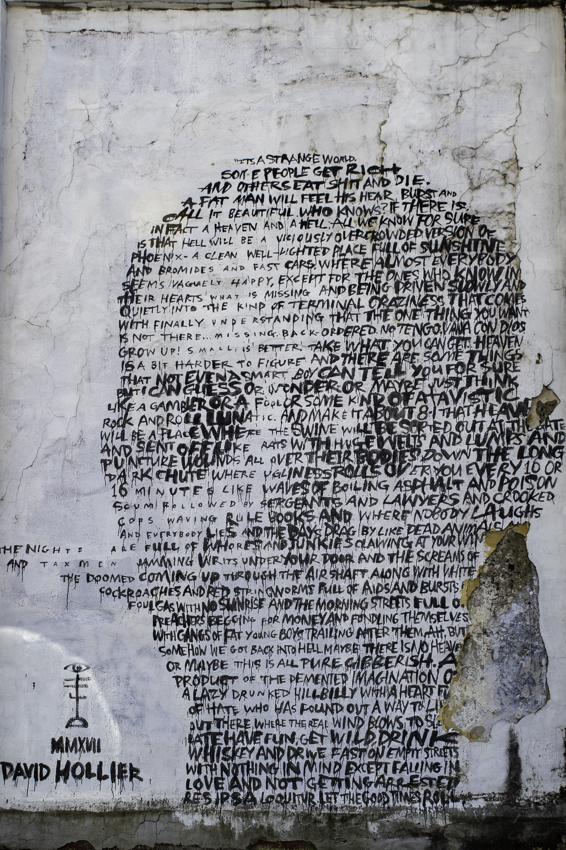 "IT'S A STRANGE WORLD.
SOME PEOPLE GET RICH
AND OTHERS EAT SHIT AND DIE.
A FAT MAN WILL FEEL HIS HEAR BURST AND
CALL IT BEAUTIFUL. WHO KNOWS? IF THERE IS
IN FACT A HEAVEN AND A HELL ALL WE KNOW FOR SURE
IS THAT HELL WILL BE A VICIOUSLY OVERCROWDED VERSION OF
PHOENIX - A CLEAN WELL-LIGHTED PLACE FULL OF SUNSHINE
AND BROMIDES AND FAST CARS WHERE ALMOST EVERYBODY
SEEMS VAGUELY HAPPY, EXCEPT FOR THE ONES WHO KNOW IN
THEIR HEARTS WHAT IS MISSING AND BEING DRIVEN SLOWLY AND
QUIETLY INTO THE KIND OF TERMINAL CRAZINESS THAT COMES
WITH FINALLY UNDERSTANDING THAT THE ONE THING YOU WANT
IS NOT THERE... MISSING. BACK-ORDERED. NO TENGO. VAYA CON DIOS
GROW UP! SMALL IS BETTER. TAKE WHAT YOU CAN GET. HEAVEN
IS A BIT HARDER TO FIGURE AND THERE ARE SOME THINGS
THAT NOT EVEN A SMART BOY CAN TELL YOU FOR SURE
BUT I CAN GUESS OR WONDER OR MAYBE JUST THINK
LIKE A GAMBLER OR A FOOL OR SOME KIND OF ATAVISTIC
ROCK AND ROLL LUNATIC. AND MAKE IT ABOUT 8-1 THAT HEAVEN
WILL BE A PLACE WHERE THE SWINE WILL BE SORTED OUT AT THE GATE
AND SENT OFF LIKE RATS WITH HUGE WELTS AND LUMPS AND
PUNCTURE WOUNDS ALL OVER THEIR BODIES DOWN THE LONG
DARK CHUTE WHERE UGLINESS ROLLS OVER YOU EVERY 10 OR
16 MINUTES LIKE WAVES OF BOILING ASPHALT AND POISON
SCUM FOLLOWED BY SERGEANTS AND LAWYERS AND CROOKED
COPS WAVING RULE BOOKS AND WHERE NOBODY LAUGHS
AND EVERYBODY LIES AND THE DAYS DRAG BY LIKE DEAD ANIMALS
THE NIGHTS ARE FULL OF WHORES AND JUNKIES CLAWING AT YOUR WIN
AND TAXMEN JAMMING WRITS UNDER YOUR DOOR AND THE SCREAMS OF
THE DOOMED COMING UP THROUGH THE AIR SHAFT ALONG WITH WHITE
COCKROACHES AND RED STRINGWORMS FULL OF AIDS AND BURSTS
FOUL GAS WITH NO SUNRISE AND THE MORNING STREETS FULL OF
PREACHERS BEGGING FOR MONEY AND FONDLING THEMSELVES
WITH GANGS OF FAT YOUNG BOYS TRAILING AFTER THEM. AH, BUT
SOMEHOW WE GOT BACK INTO HELL MAYBE THERE IS NO HEAVE
OR MAYBE THIS IS ALL PURE GIBBERISH. A
PRODUCT OF THE DEMENTED IMAGINATION O
A LAZY DRUNKED HILLBILLY WITH A HEART FU
OF HATE WHO HAS FOUND OUT A WAY TO LIV
OUT THERE WHERE THE REAL WIND BLOWS TO SL
LATE HAVE FUN, GET WILD DRINK
WHISKEY AND DRIVE FAST ON EMPTY STREETS
WITH NOTHING IN MIND EXCEPT FALLING IN
LOVE AND NOT GETTING ARRESTED
RES IPSA LOQUITUR LET THE GOOD TIMES ROLL.
MMXVII
DAVID HOLLIER